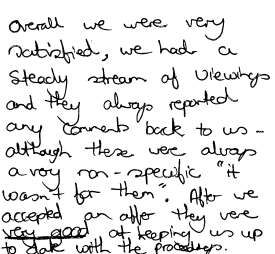 Overall we were very
satisfied, we had a
steady stream of viewings
and they always reported
any comments back to us -
although these were always
a very non-specific "it
wasn't for them". After we
accepted an offer they were
very good at keeping us up
to date with the proceedings.